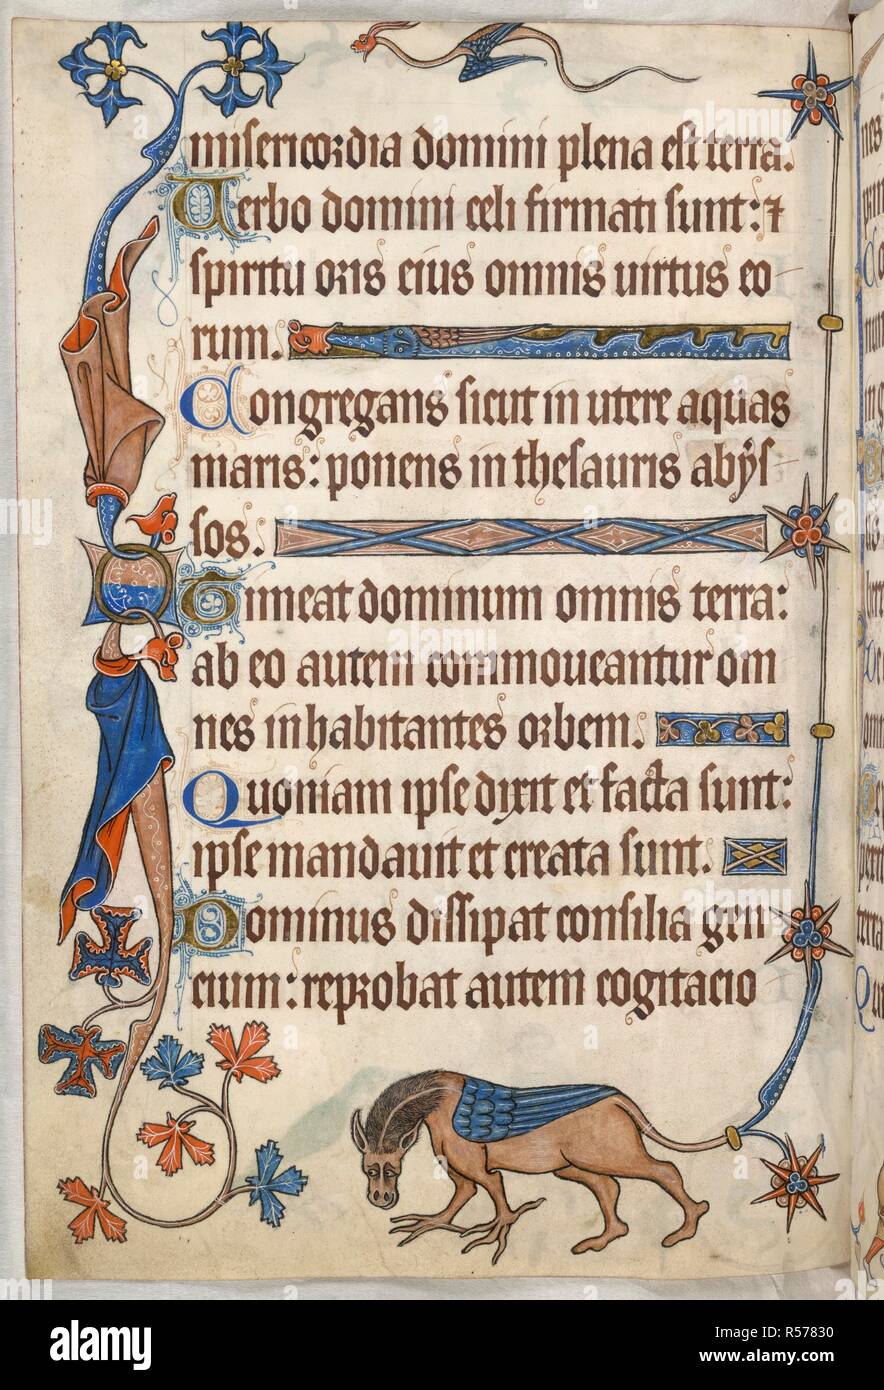 misericordia domini plena est terra.
Verbo domini celi firmati sunt: ⁊
spiritu oris eius omnis uirtus eo
rum.
Congregans sicut in utere aquas
maris: ponens in thesauris abys
sos.
Timeat dominum omnis terra:
ab eo autem commoueantur om
nes inhabitantes orbem.
Quoniam ipse dixit et facta sunt:
ipse mandauit et creata sunt.
Dominus dissipat consilia gen
cium: reprobat autem cogitacio
alamy
Image ID: R57830
www.alamy.com